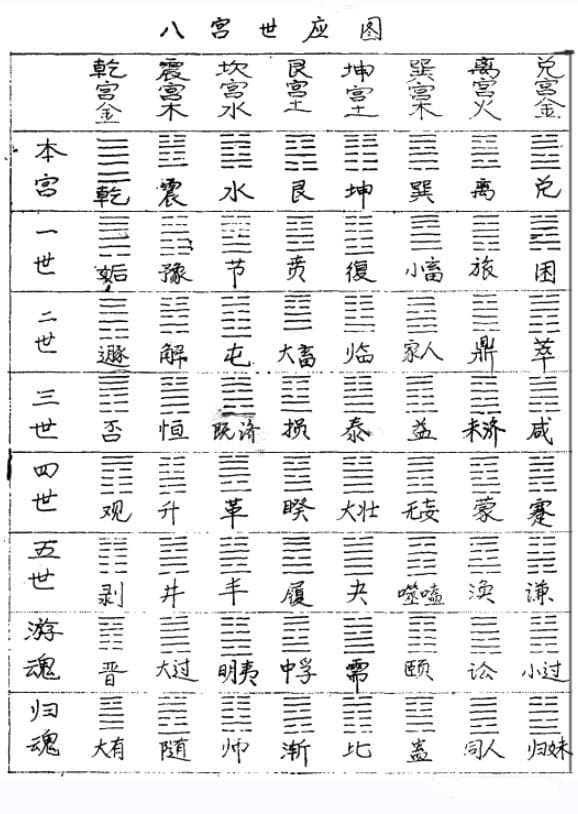 八宫世应图
乾宫金 震宫木 坎宫水 艮宫土 坤宫土 巽宫木 离宫火 兑宫金
本宫 乾 震 水 艮 坤 巽 离 兑
一世 姤 豫 节 贲 復 小畜 旅 困
二世 遯 解 屯 大畜 临 家人 鼎 萃
三世 否 恒 既济 损 泰 益 未济 咸
四世 观 升 革 睽 大壮 无妄 蒙 蹇
五世 剥 井 丰 履 夬 噬嗑 涣 谦
游魂 晋 大过 明夷 中孚 需 颐 讼 小过
归魂 大有 随 师 渐 比 蛊 同人 归妹